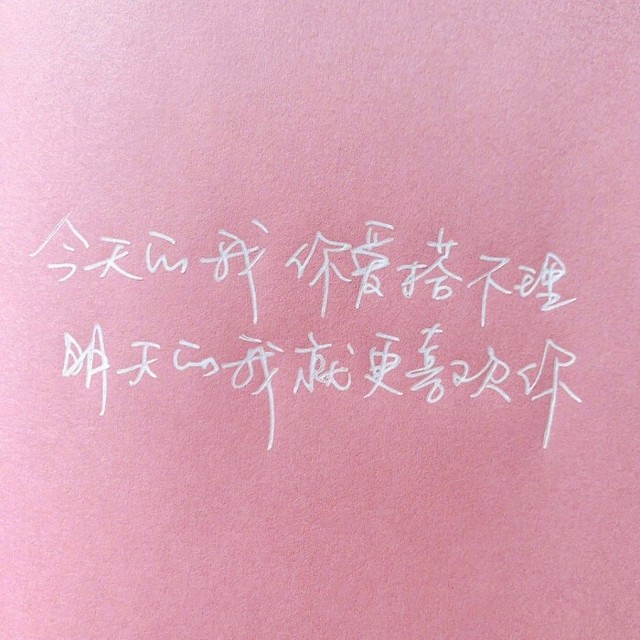 今天的我 你爱搭不理
明天的我就更喜欢你